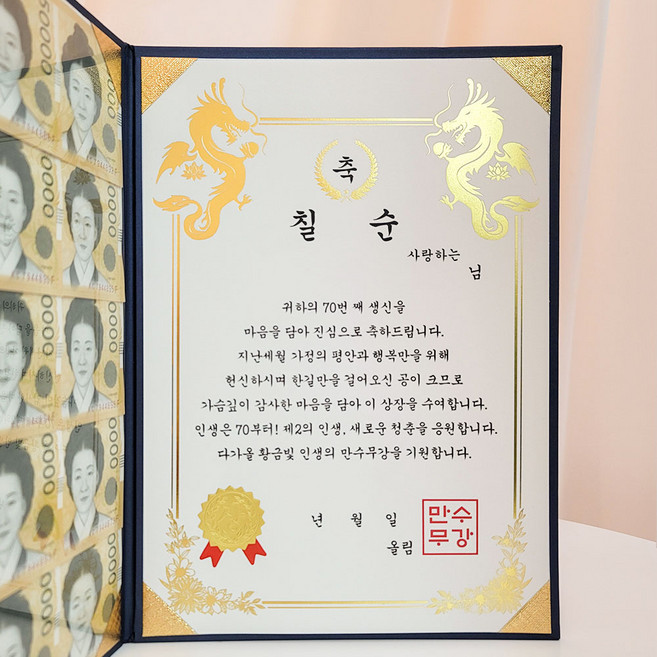 축
칠 순
사랑하는
님
귀하의 70번 째 생신을
마음을 담아 진심으로 축하드립니다.
지난세월 가정의 평안과 행복만을 위해
헌신하시며 한길만을 걸어오신 공이 크므로
가슴깊이 감사한 마음을 담아 이 상장을 수여합니다.
인생은 70부터! 제2의 인생, 새로운 청춘을 응원합니다.
다가올 황금빛 인생의 만수무강을 기원합니다.
년 월 일
올림
만수
무강